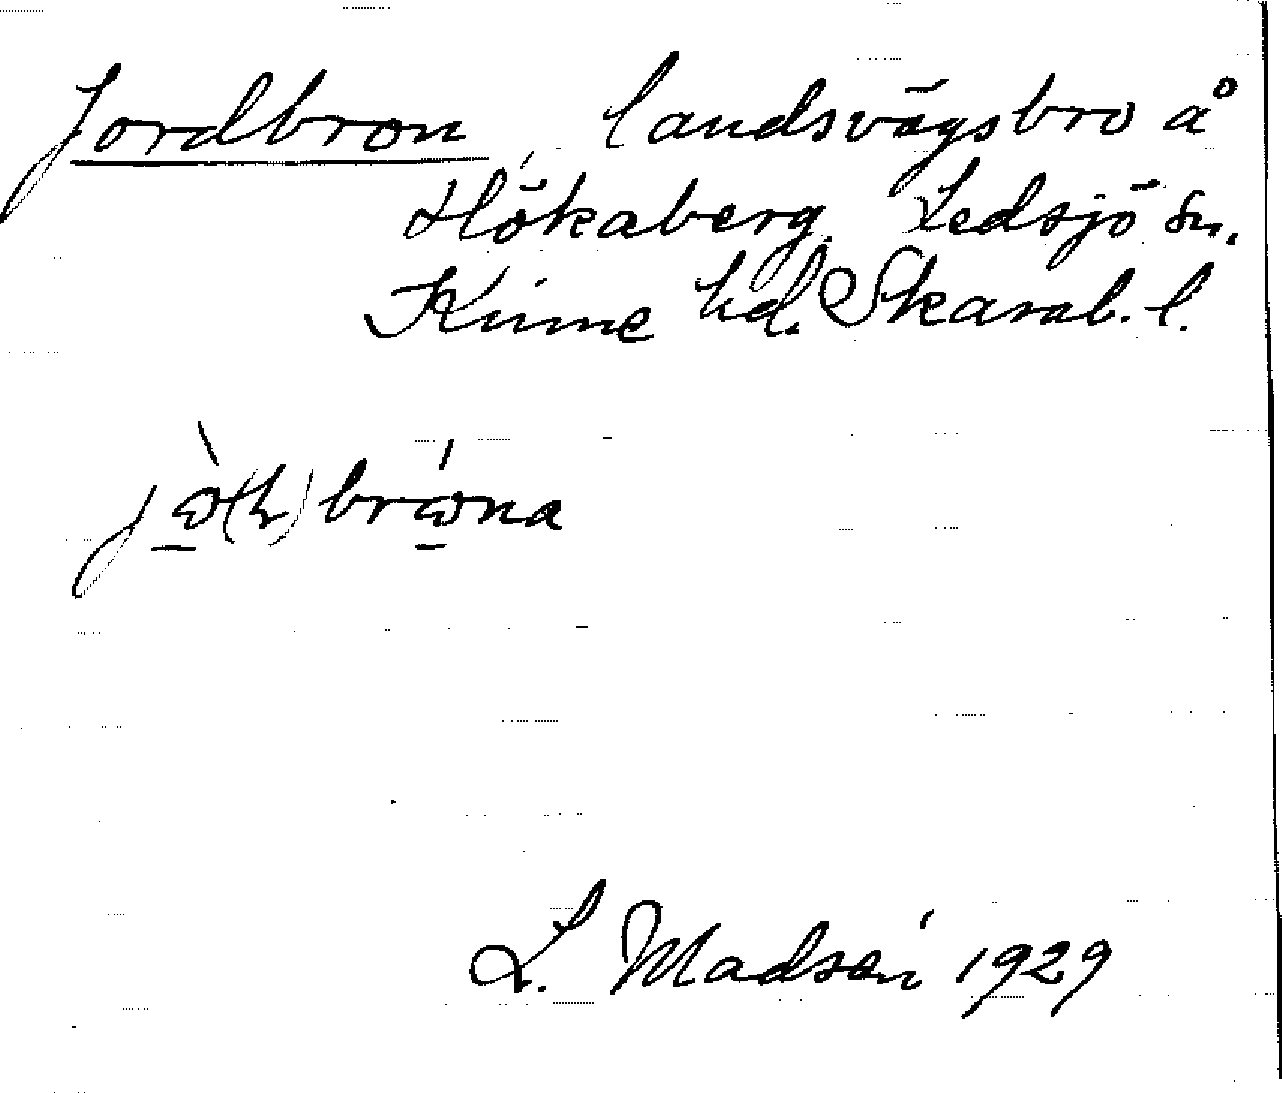 Jordbron, landsvägsbro å
Hökaberg, Ledsjö sn.
Kinne hd. Skarab. l.
L. Madsén 1929